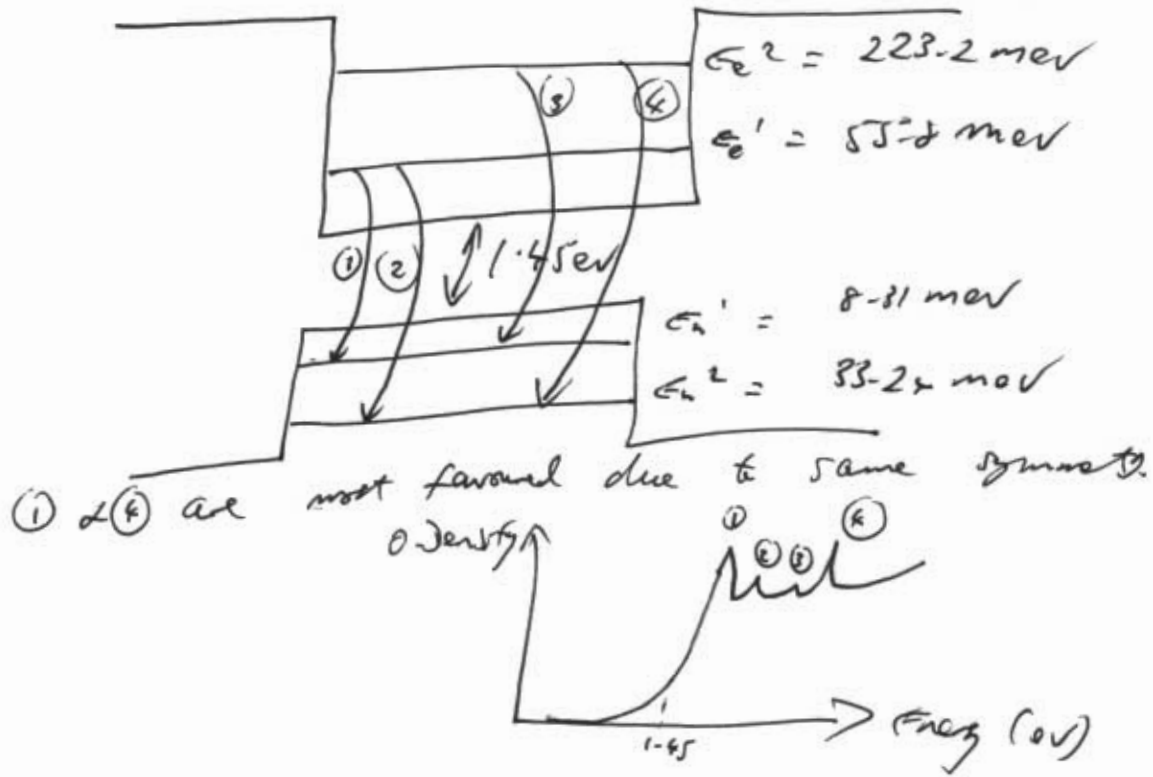 ϵe² = 223.2 meV
③ ④
ϵe¹ = 55.8 meV
① ② 1.45 eV
ϵh¹ = 8.31 meV
ϵh² = 33.24 meV
① & ④ are most favoured due to same symmetry.
① ② ③ ④
O Density
1.45
Energy (eV)